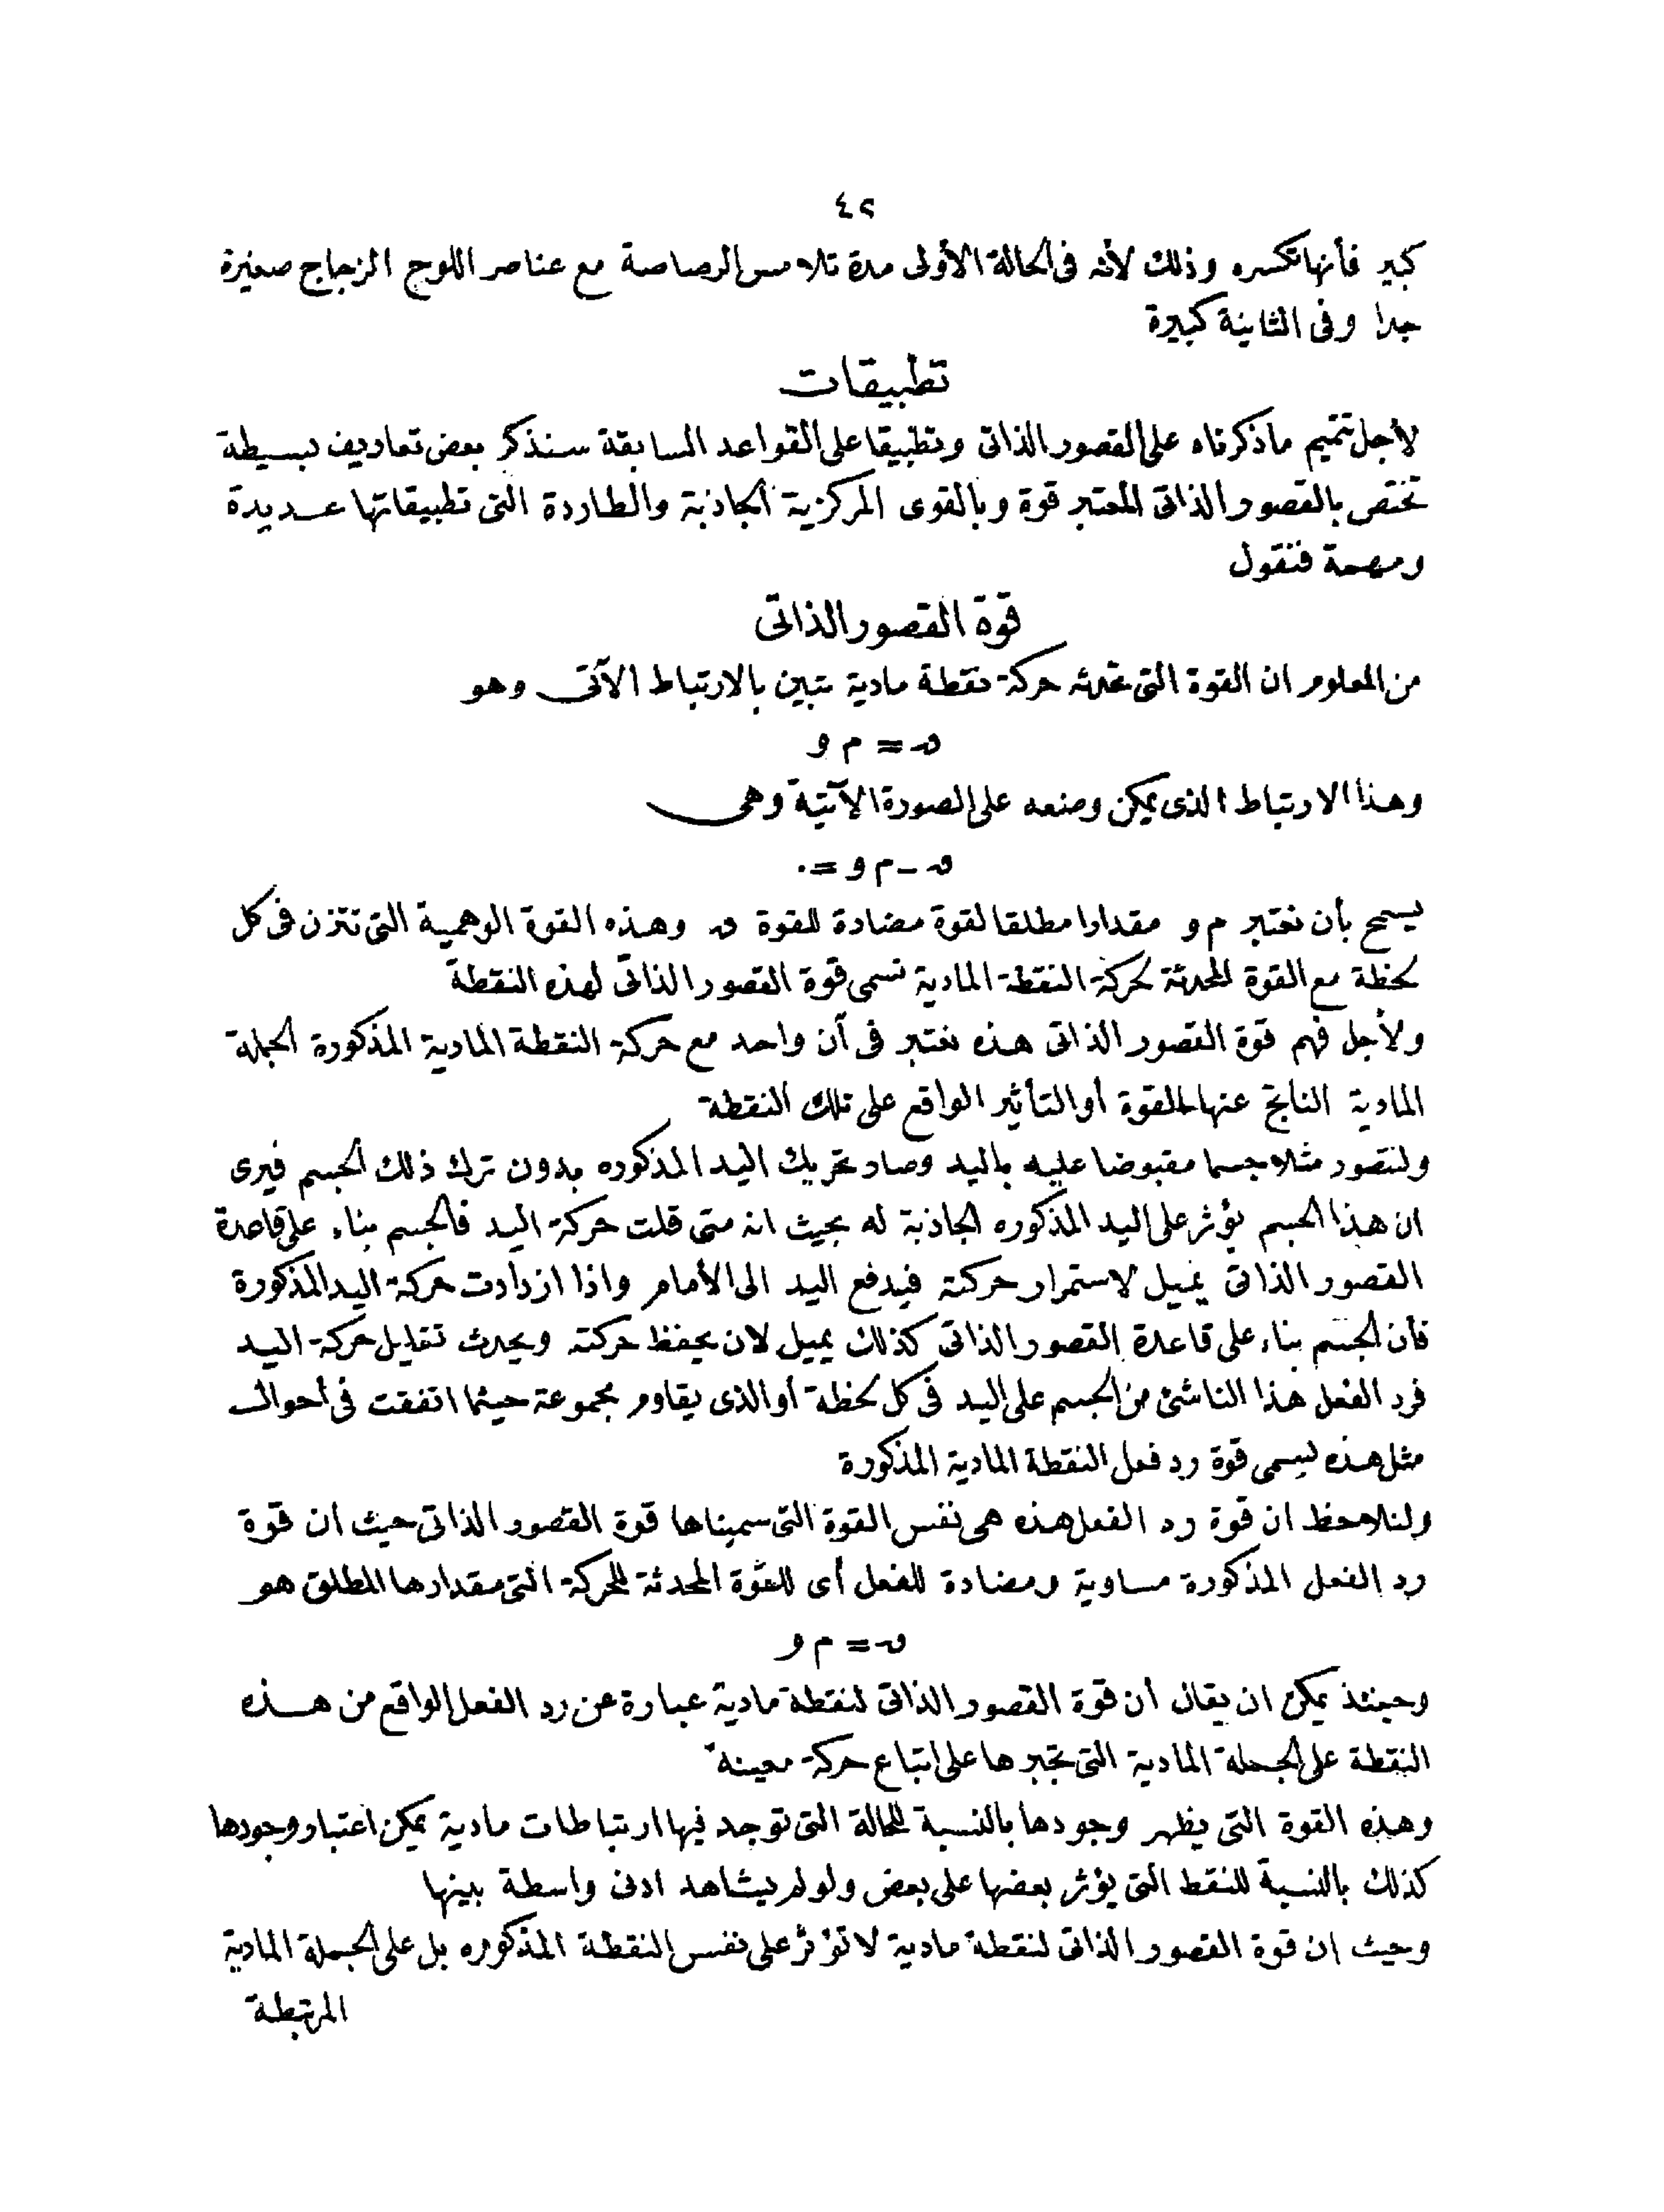 ٤٢
كبير فأنها تكسره وذلك لأنه فى الحالة الأولى مدة تلامس الرصاصة مع عناصر اللوح الزجاج صغيرة
جدا وفى الثانية كبيرة
تطبيقات
لأجل تتميم ماذكرناه على القصور الذاتى وتطبيقا على القواعد السابقة سنذكر بعض تعاريف بسيطة
تختص بالقصور الذاتى المعتبر قوة وبالقوى المركزية الجاذبة والطاردة التى تطبيقاتها عديدة
ومهمة فنقول
قوة القصور الذاتى
من المعلوم ان القوة التى تحدثه حركة نقطة مادية تتبين بالارتباط الآتى وهو
ں = م و
وهذا الارتباط الذى يمكن وضعه على الصورة الآتية وهى
ں - م و = ٠
يسمح بأن نعتبر م و مقدارا مطلقا لقوة مضادة للقوة ں وهذه القوة الوهمية التى تتزن فى كل
لحظة مع القوة المحدثة لحركة النقطة المادية تسمى قوة القصور الذاتى لهذه النقطة
ولأجل فهم قوة القصور الذاتى هذه نعتبر فى آن واحد مع حركة النقطة المادية المذكورة الجملة
المادية الناتج عنها القوة أو التأثير الواقع على تلك النقطة
ولنتصور مثلا جسما مقبوضا عليه باليد وصار تحريك اليد المذكوره بدون ترك ذلك الجسم فيرى
ان هذا الجسم يؤثر على اليد المذكوره الجاذبة له بحيث انه متى قلت حركة اليد فالجسم بناء على قاعدة
القصور الذاتى يميل لاستمرار حركته فيدفع اليد الى الأمام واذا ازدادت حركة اليد المذكورة
فأن الجسم بناء على قاعدة القصور الذاتى كذلك يميل لان يحفظ حركته ويحدث تقليل حركة اليد
فرد الفعل هذا الناشئ من الجسم على اليد فى كل لحظة أو الذى يقاوم مجموعة حيثما اتفقت فى أحوال
مثل هذه يسمى قوة رد فعل النقطة المادية المذكورة
ولنلاحظ ان قوة رد الفعل هذه هى نفس القوة التى سميناها قوة القصور الذاتى حيث ان قوة
رد الفعل المذكورة مساوية ومضادة للفعل أى للقوة المحدثة للحركة التى مقدارها المطلق هو
ں = م و
وحينئذ يمكن ان يقال أن قوة القصور الذاتى لنقطة مادية عبارة عن رد الفعل الواقع من هذه
النقطة على الجملة المادية التى تجبرها على اتباع حركة معينة
وهذه القوة التى يظهر وجودها بالنسبة للحالة التى توجد فيها ارتباطات مادية يمكن اعتبار وجودها
كذلك بالنسبة للنقط التى يؤثر بعضها على بعض ولو لم يشاهد ادنى واسطة بينها
وحيث ان قوة القصور الذاتى لنقطة مادية لا تؤثر على نفس النقطة المذكوره بل على الجملة المادية
المرتبطة